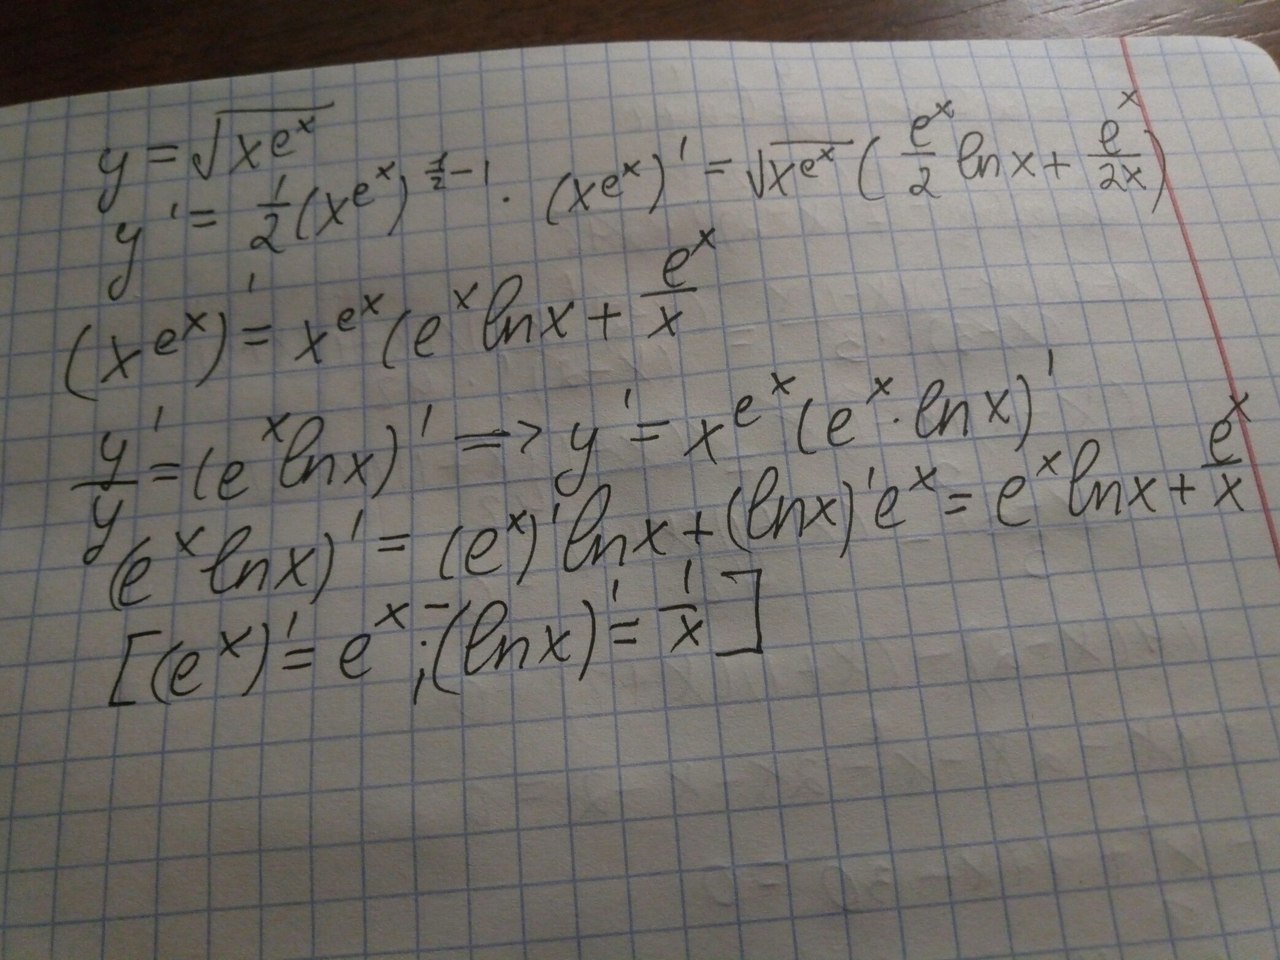 y = √(x^(e^x))
y' = 1/2 (x^(e^x))^(1/2 - 1) · (x^(e^x))' = √(x^(e^x)) (e^x/2 ln x + e^x/2x)
(x^(e^x))' = x^(e^x) (e^x ln x + e^x/x
y'/y = (e^x ln x)' => y' = x^(e^x) (e^x · ln x)'
(e^x ln x)' = (e^x)' ln x + (ln x)' e^x = e^x ln x + e^x/x
[(e^x)' = e^x ; (ln x)' = 1/x]